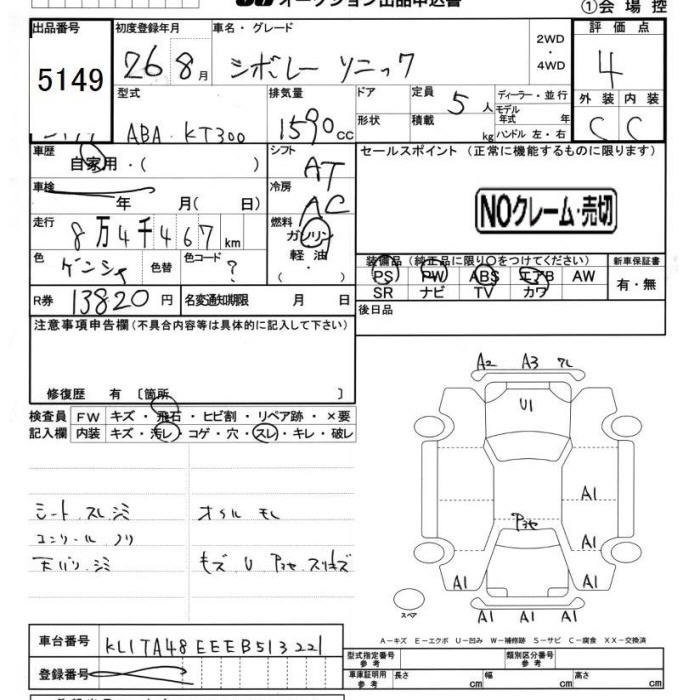 オークション出品申込書
①会場控
出品番号 初度登録年月 車名・グレード 2WD・4WD 評価点
5149 26 8月 シボレー ソニック 4
型式 排気量 ドア 定員 5人 ディーラー・並行 外装 内装
ABA・KT300 1590cc 形状 積載 kg モデル年式 年 ハンドル 左・右 C C
車歴 自家用・( ) シフト AT セールスポイント (正常に機能するものに限ります)
車検 年 月( 日) 冷房 AC
NOクレーム・売切
走行 8万4千467km 燃料 ガソリン・軽油・( )
色 ゲンシャ 色替 色コード ?
装備品 (純正品に限り○をつけてください) 新車保証書
PS PW ABS エアB AW 有・無
SR ナビ TV カワ
R券 13820円 名変通知期限 月 日
後日品
注意事項申告欄(不具合内容等は具体的に記入して下さい)
修復歴 有 〔箇所 〕
検査員 FW キズ・飛石・ヒビ割・リペア跡・×要
記入欄 内装 キズ・汚レ・コゲ・穴・スレ・キレ・破レ
シート スレ シミ オイル モレ
天バリ シミ キズ U スリキズ
A2 A3
U1
A1
A1 A1
A1 A1
A1 A1 A1
スペア
A-キズ E-エクボ U-凹み W-補修跡 S-サビ C-腐食 XX-交換済
車台番号 KL1TA48EEEB513221
登録番号
型式指定番号 参考 類別区分番号 参考
車庫証明用 参考 長さ cm 幅 cm 高さ cm